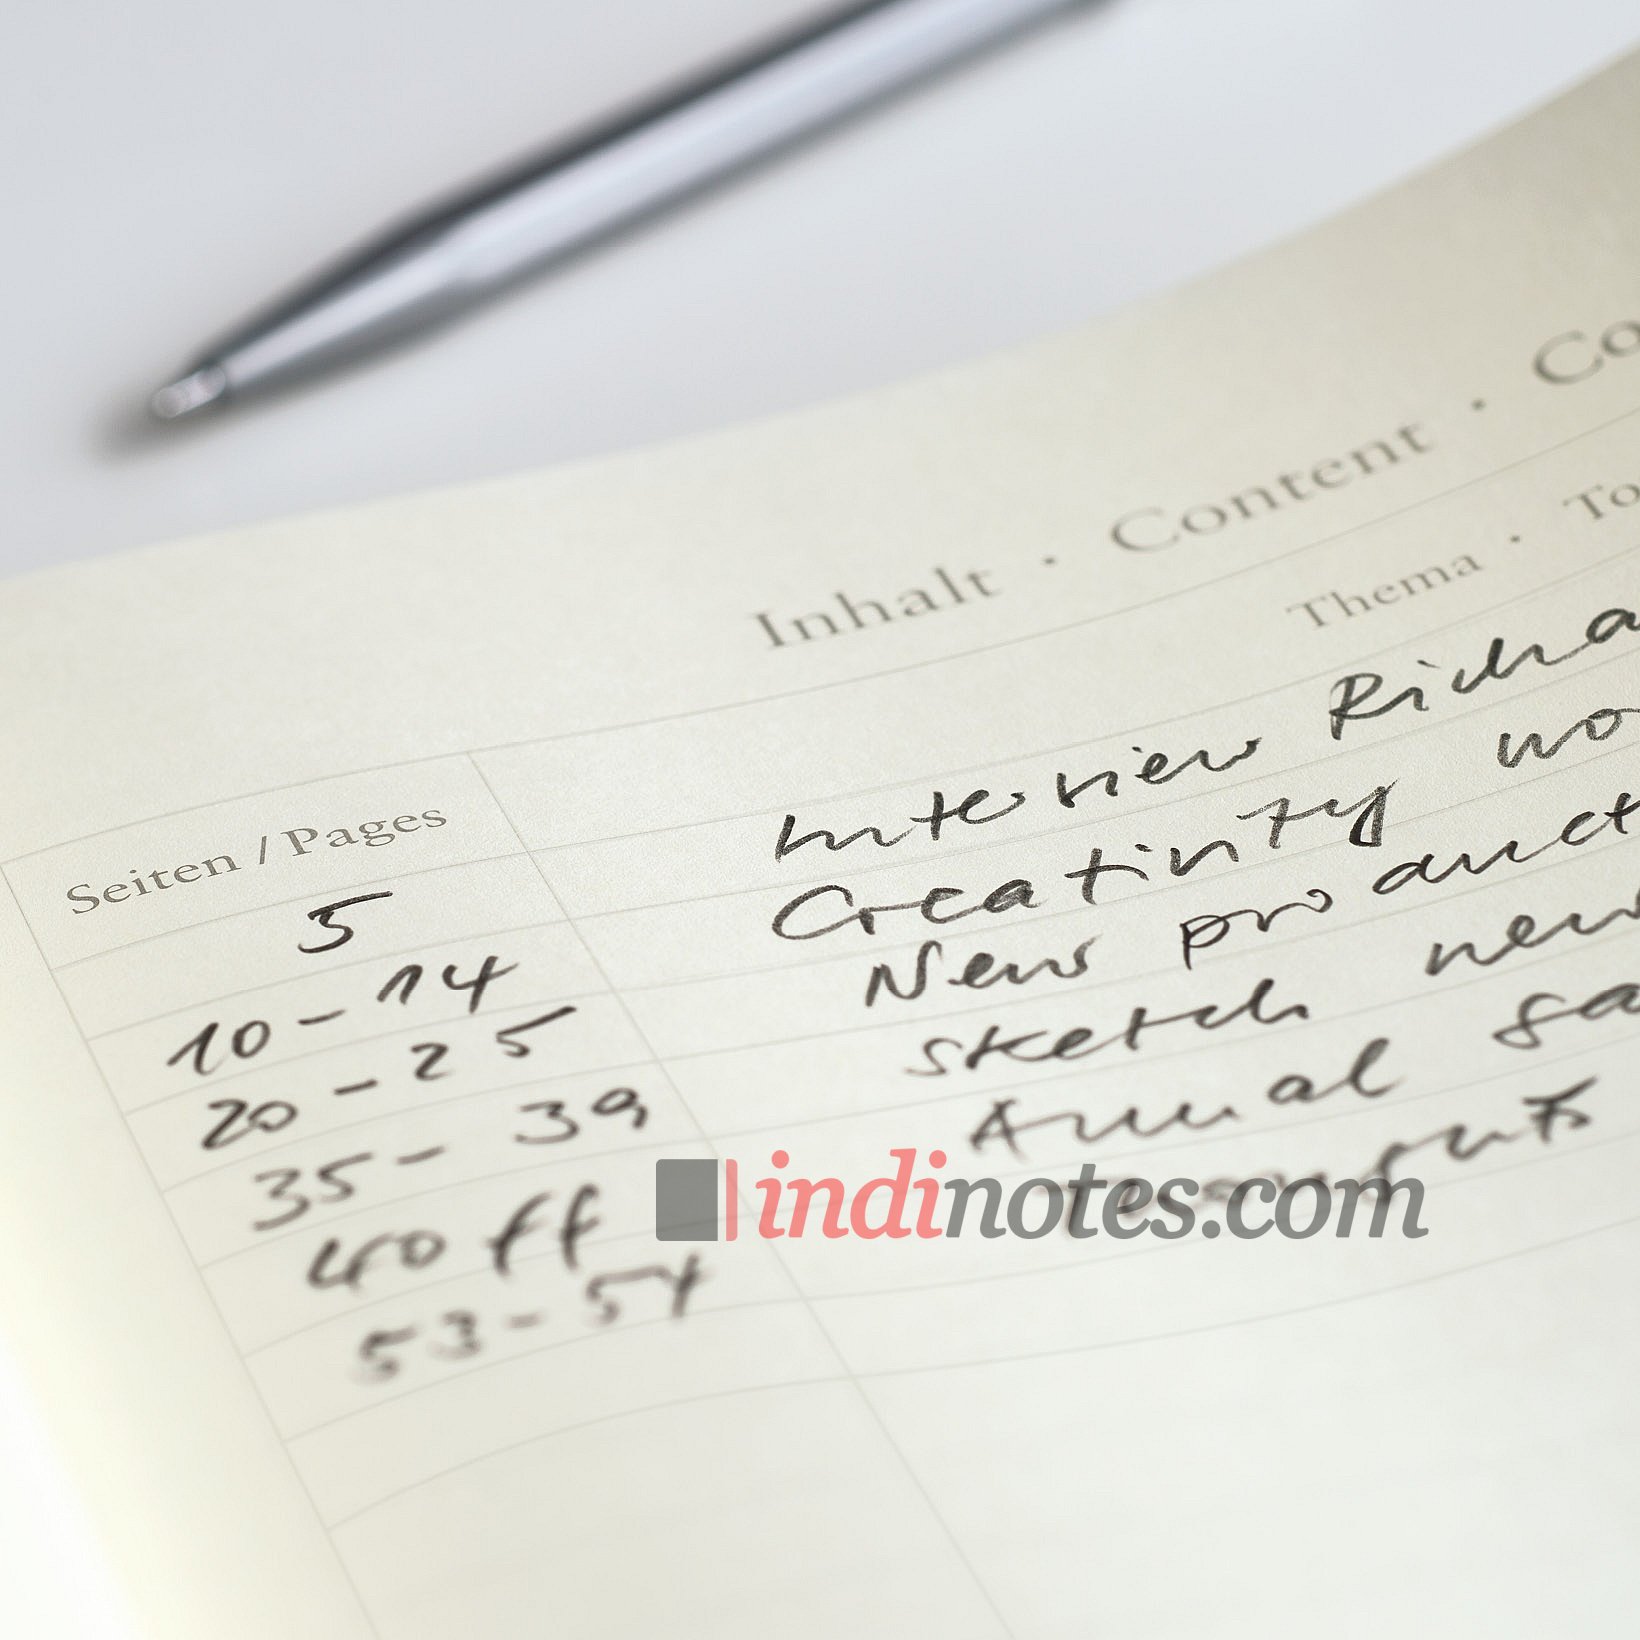 Inhalt · Content · Co
Seiten / Pages Thema · To
5 Interview Richa
10 - 14 Creativity wo
20 - 25 New product
35 - 39 Sketch new
40 ff Annual sa
53 - 54
indinotes.com